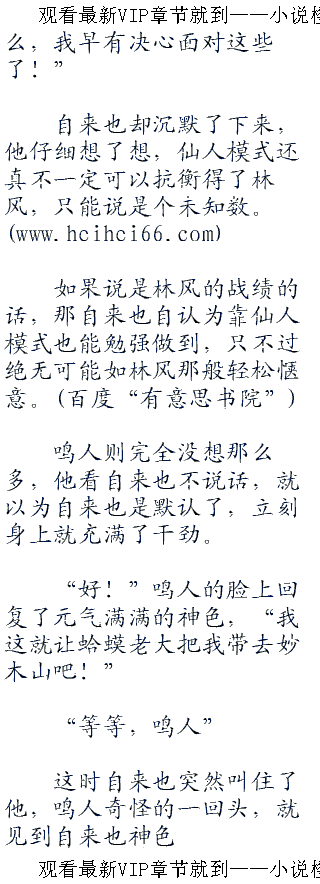 观看最新VIP章节就到——小说检
么，我早有决心面对这些
了！”
自来也却沉默了下来，
他仔细想了想，仙人模式还
真不一定可以抗衡得了林
风，只能说是个未知数。
(www.hcihci66.com)
如果说是林风的战绩的
话，那自来也自认为靠仙人
模式也能勉强做到，只不过
绝无可能如林风那般轻松惬
意。(百度“有意思书院”)
鸣人则完全没想那么
多，他看自来也不说话，就
以为自来也是默认了，立刻
身上就充满了干劲。
“好！”鸣人的脸上回
复了元气满满的神色，“我
这就让蛤蟆老大把我带去妙
木山吧！”
“等等，鸣人”
这时自来也突然叫住了
他，鸣人奇怪的一回头，就
见到自来也神色
观看最新VIP章节就到——小说检